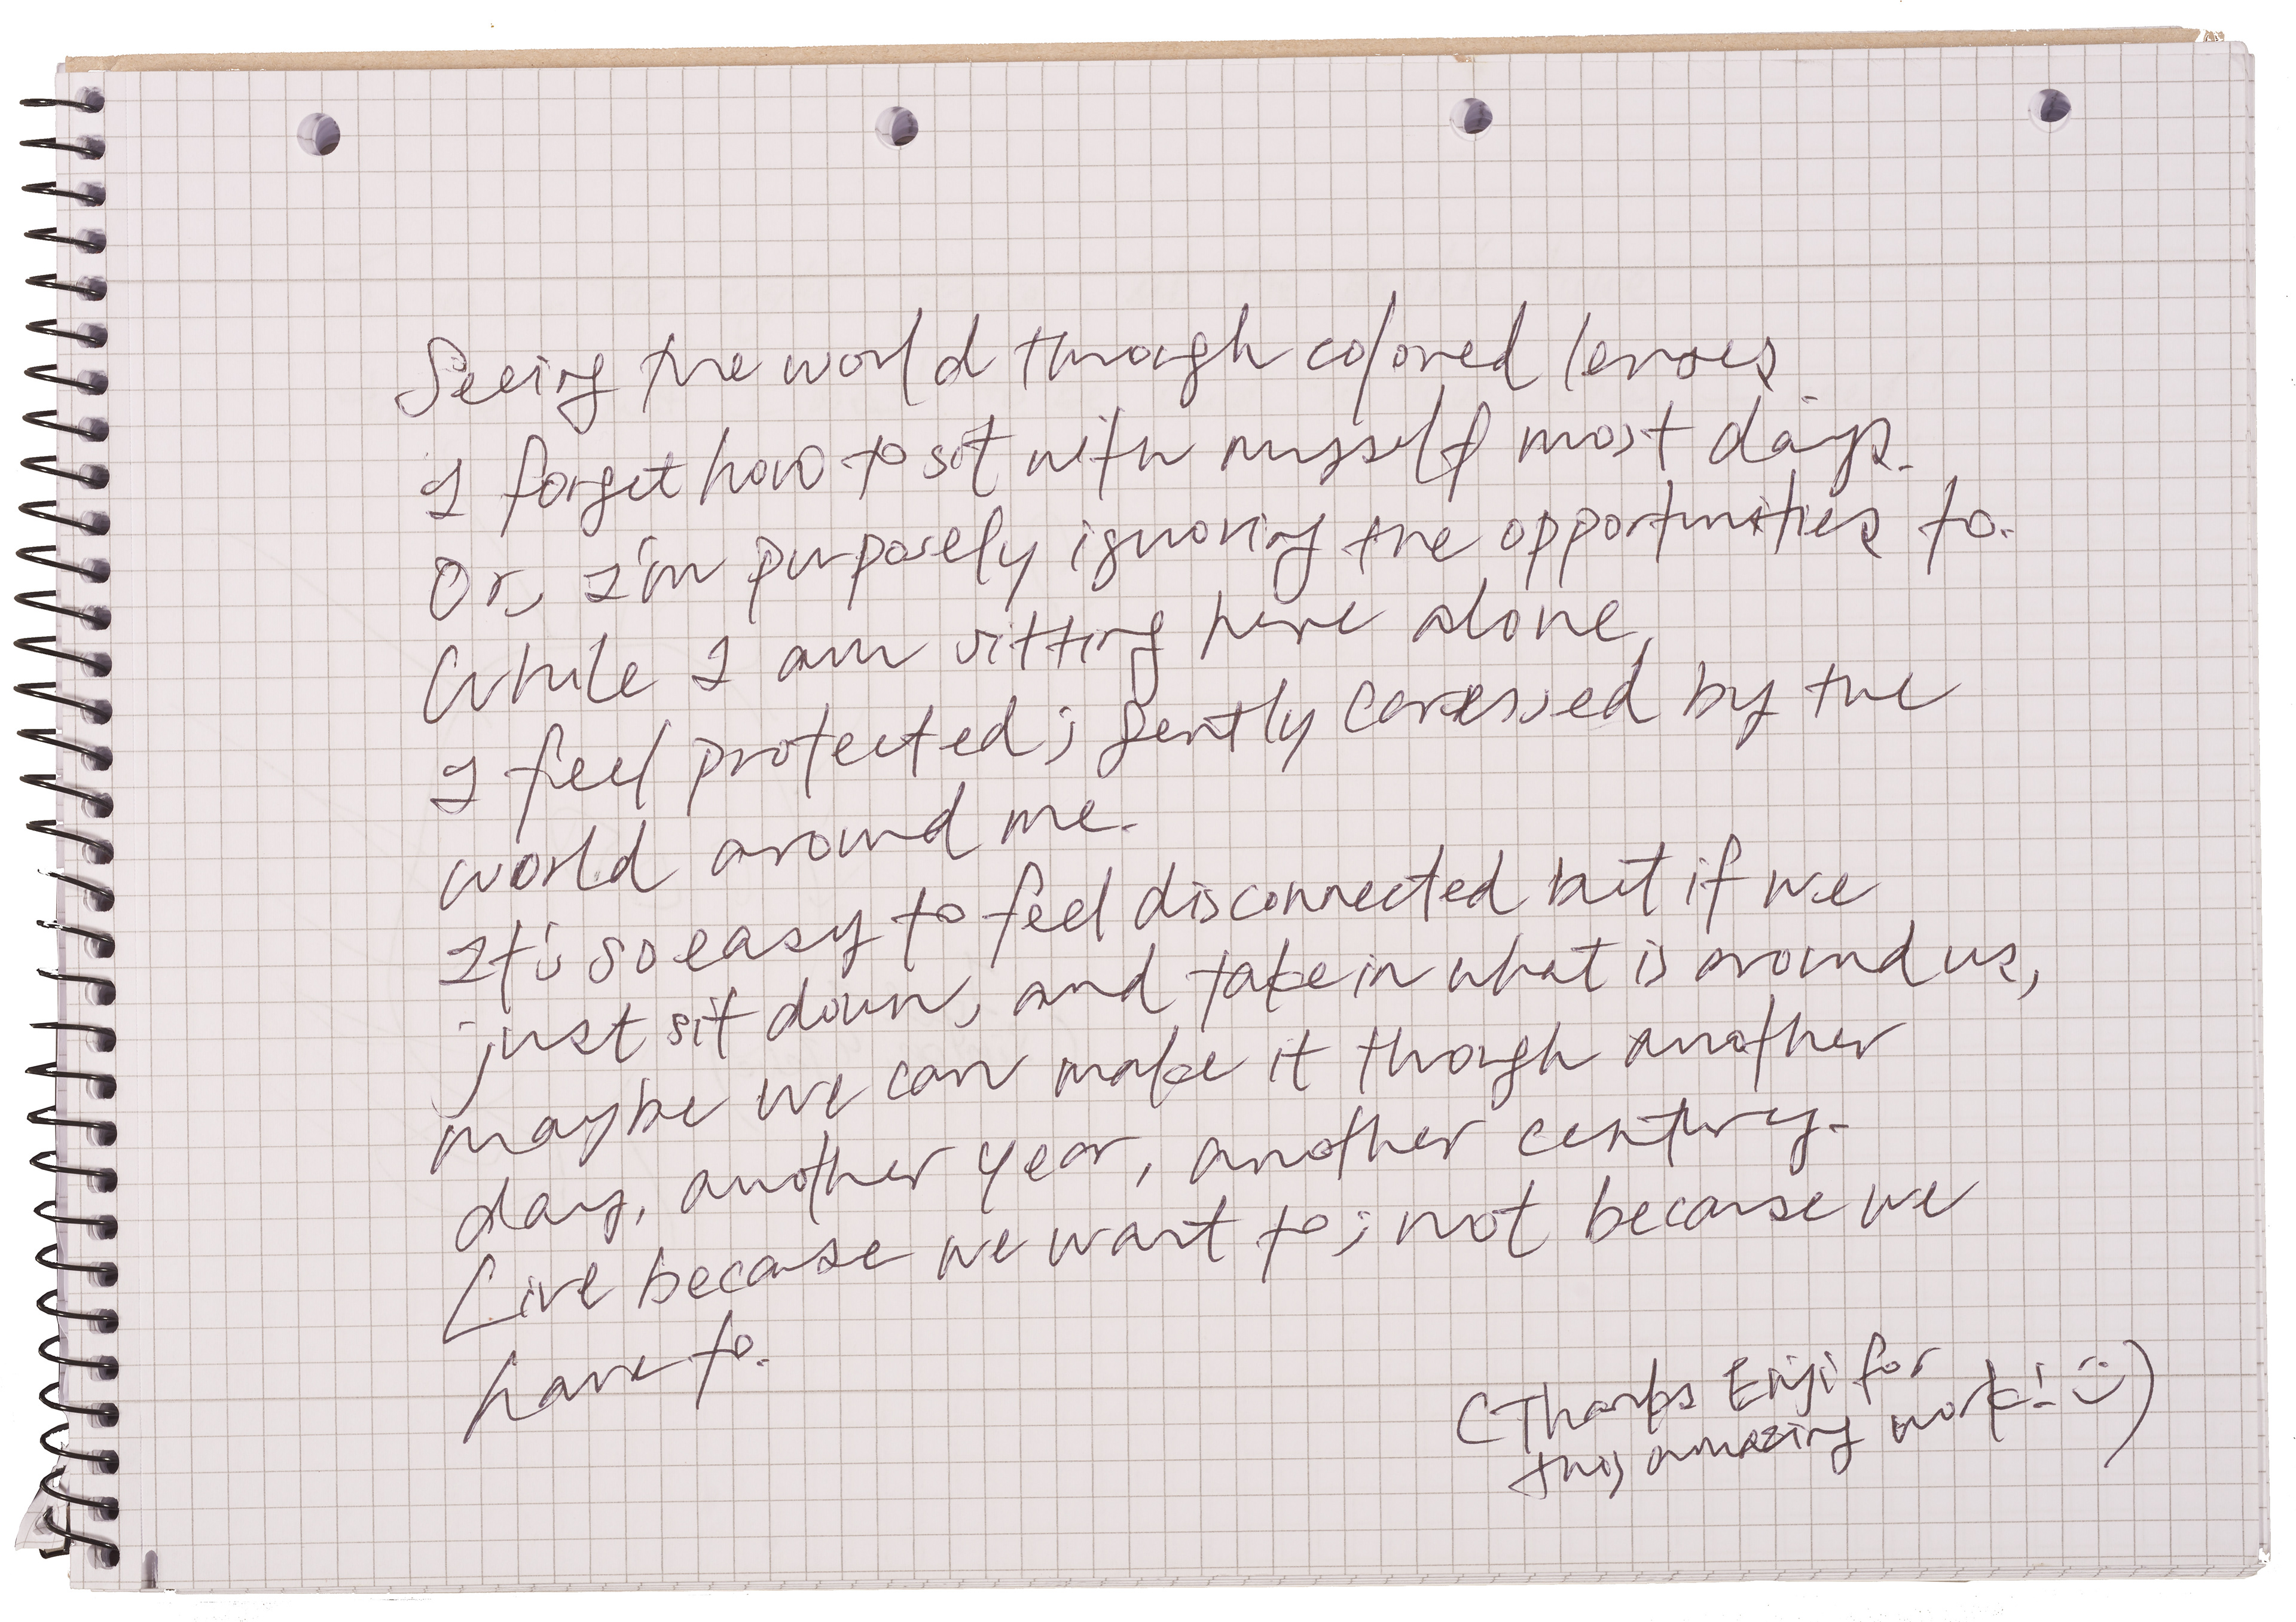 Seeing the world through colored lenses
I forget how to sit with myself most days.
Or, I'm purposely ignoring the opportunities to.
While I am sitting here alone,
I feel protected; gently caressed by the
world around me.
It's so easy to feel disconnected but if we
just sit down, and take in what is around us,
maybe we can make it through another
day, another year, another century.
Live because we want to; not because we
have to.
(Thanks Eiji for
this amazing work! :))